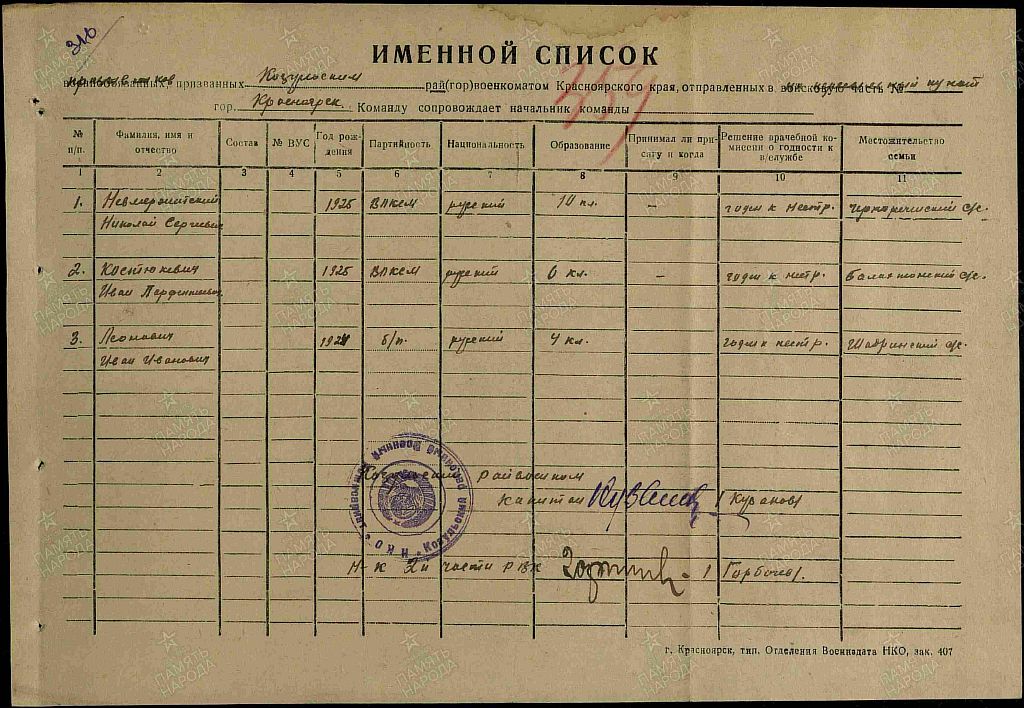 316
ИМЕННОЙ СПИСОК
призывников призванных Козульским рай(гор)военкоматом Красноярского края, отправленных в войсковую часть №
гор. Красноярск. Команду сопровождает начальник команды
354
№ п/п. Фамилия, имя и отчество Состав № ВУС Год рождения Партийность Национальность Образование Принимал ли присягу и когда Решение врачебной комиссии о годности к в/службе Местожительство семьи
1 2 3 4 5 6 7 8 9 10 11
1. 1925 ВЛКСМ русский 10 кл. — годен к нестр.
Николай Сергеевич
2. Костюкевич 1925 ВЛКСМ русский 6 кл. — годен к нестр. Балахтонский с/с.
Иван Парфентьевич
3. Леонович 192 б/п. русский 4 кл. годен к нестр. Шадринский с/с.
Иван Иванович
Козульский райвоенком
капитан / Кубанов /
Н-к 2й части РВК / Горбачев /.
НКО
г. Красноярск, тип. Отделения Воениздата НКО, зак. 407
ПАМЯТЬ НАРОДА